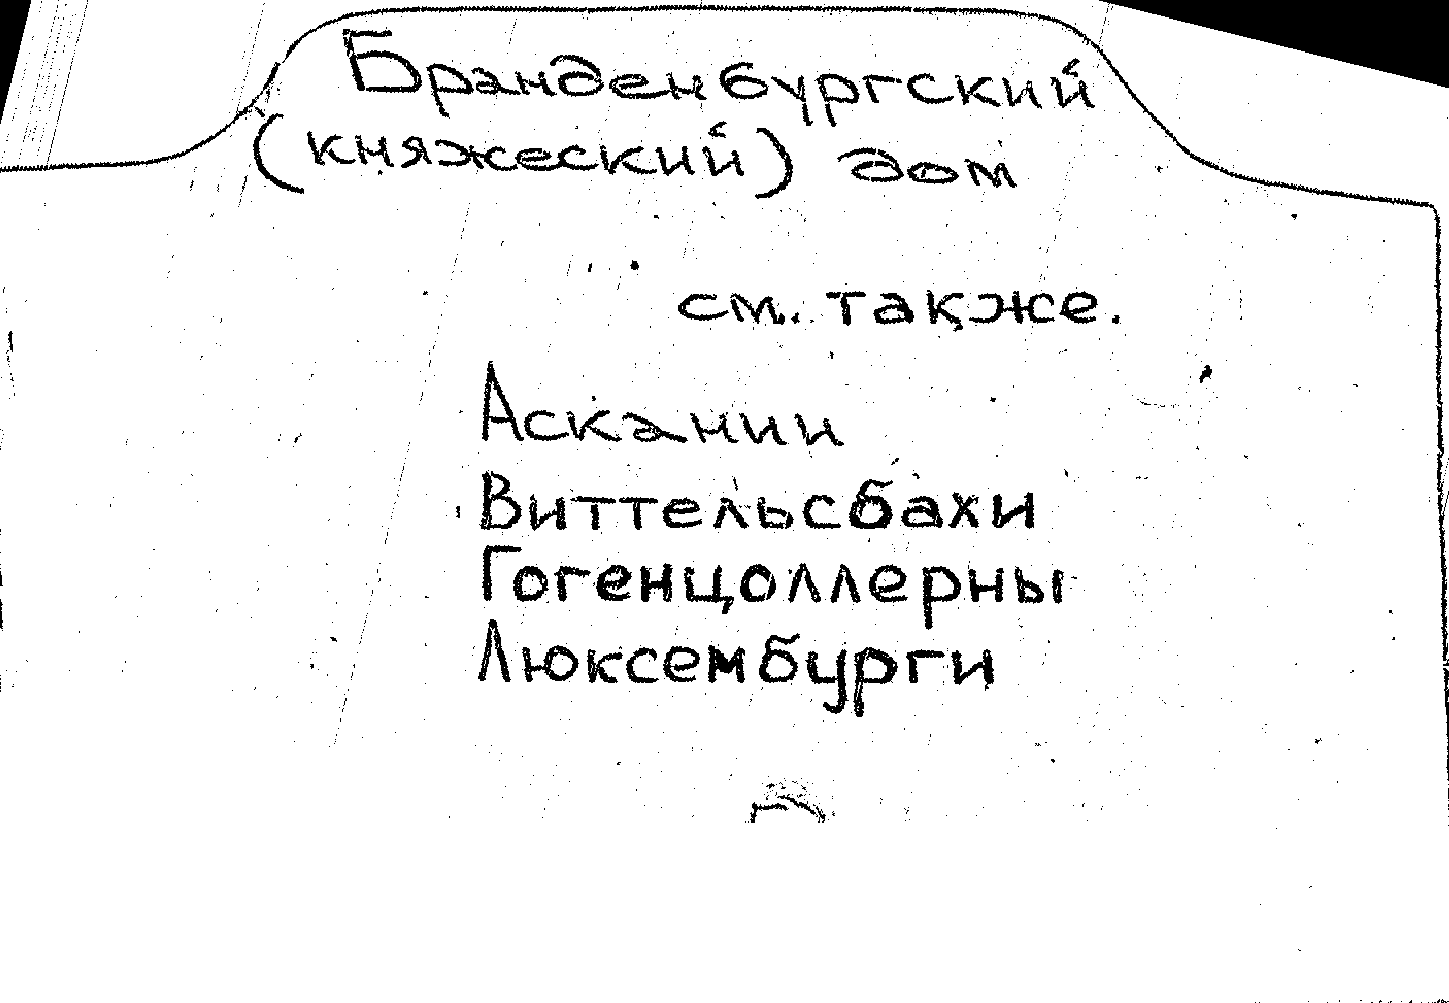 Бранденбургский
(княжеский) дом
см. также.
Аскании
Виттельсбахи
Гогенцоллерны
Люксембурги